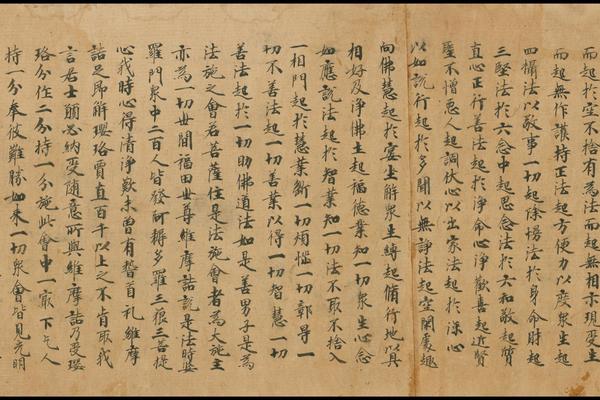 而起於空不捨有為法而起無相示現受生
而起無作護持正法起方便力以度衆生起
四攝法以敬事一切起除慢法於身命財起
三堅法於六念中起思念法於六和敬起質
直心正行善法起於淨命心淨歡喜起近賢
聖不憎惡人起調伏心以出家法起於深心
以如説行起於多聞以無諍法起空閑處趣
向佛慧起於宴坐解衆生縛起脩行地以具
相好及淨佛土起福德業知一切衆生心念
如應説法起於智業知一切法不取不捨入
一相門起於慧業斷一切煩惱一切鄣导一
切不善法起一切善業以得一切智慧一切
善法起於一切助佛道法如是善男子是為
法施之會若菩薩住是法施會者為大施主
亦為一切世間福田世尊維摩詰説是法時婆
羅門衆中二百人皆發阿耨多羅三藐三菩提
心我時心得清淨歎未曾有稽首礼維摩
詰足即解瓔珞賈直百千以上之不肯取我
言居士願必納受隨意所與維摩詰乃受瓔
珞分作二分持一分施此會中一冣下乞人
持一分奉彼難勝如来一切衆會皆見光明